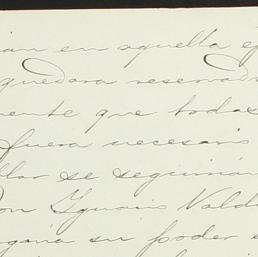 ian en aquella ep
quedara reservad
mente que todas
fuera necesario
llar se seguirán
on Ignacio Vald
rgaria su poder e